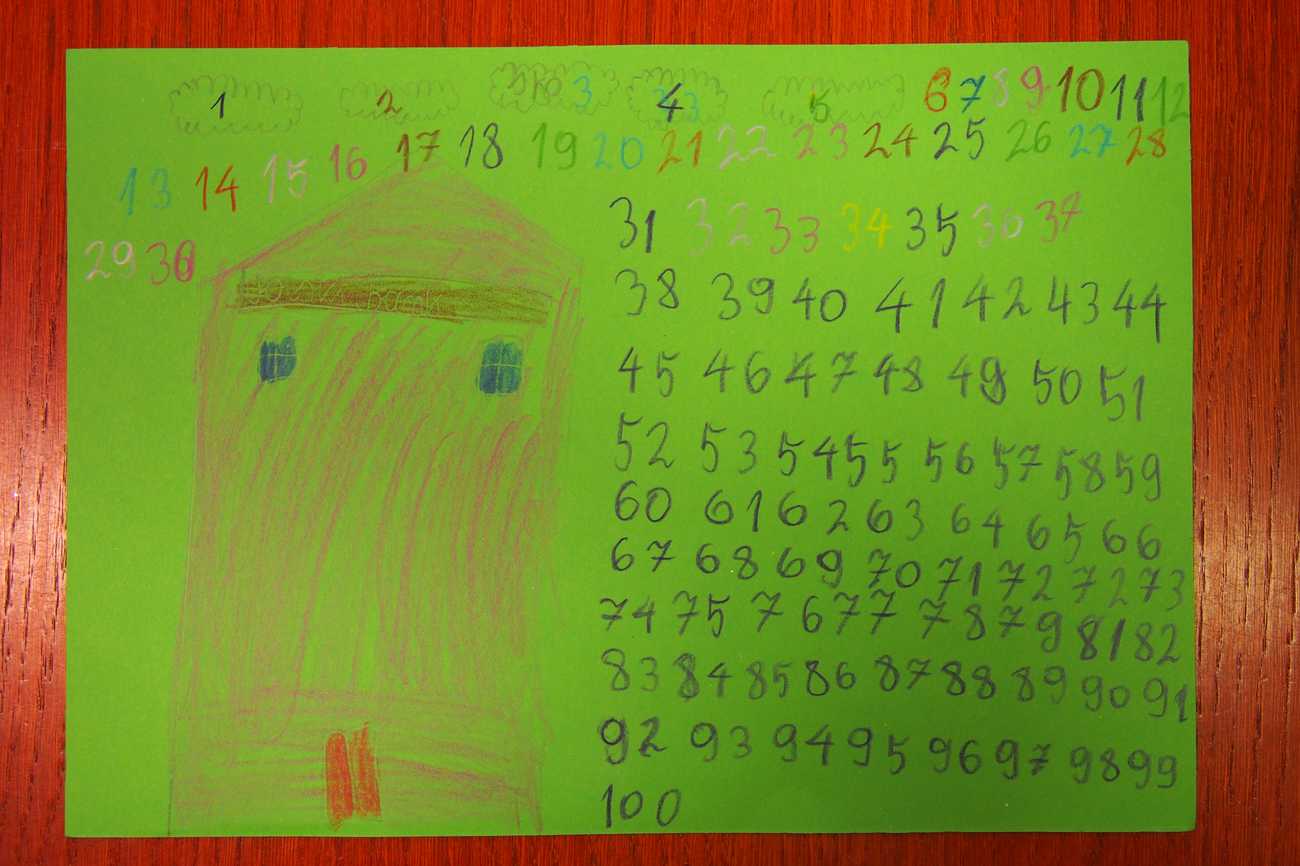 1 2 3 4 5 6 7 8 9 10 11 12
13 14 15 16 17 18 19 20 21 22 23 24 25 26 27 28
29 30
31 32 33 34 35 36 37
38 39 40 41 42 43 44
45 46 47 48 49 50 51
52 53 54 55 56 57 58 59
60 61 62 63 64 65 66
67 68 69 70 71 72 72 73
74 75 76 77 78 79 81 82
83 84 85 86 87 88 89 90 91
92 93 94 95 96 97 98 99
100